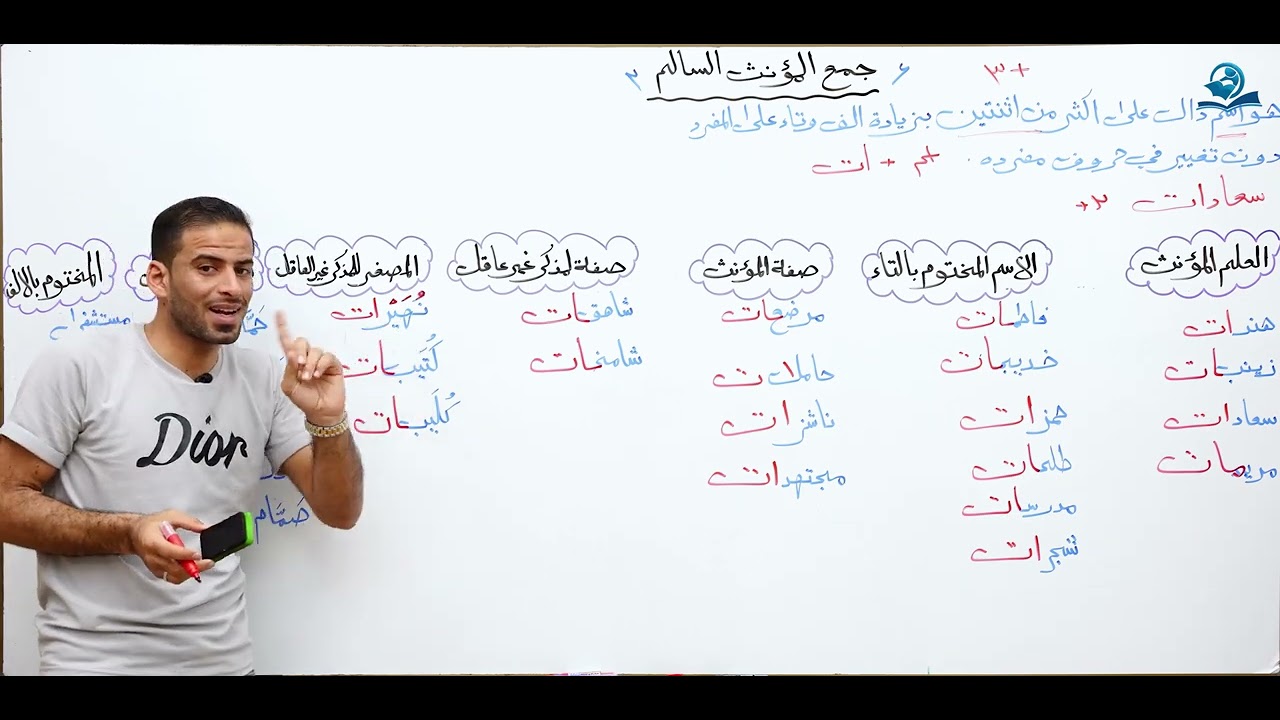 جمع المؤنث السالم
+٣
هو اسم دال على اكثر من اثنتين بزيادة الف وتاء على المفرد
دون تغيير في حروف مفرده . + ات
سعادات +٣
العلم المؤنث
هندات
زينبات
سعادات
مريمات
الاسم المختوم بالتاء
فاطمات
خديجات
حمزات
طلحات
مدرسات
شجرات
صفة المؤنث
مرضعات
حاملات
ناشزات
مجتهدات
صفة لمذكر غير عاقل
شاهقات
شامخات
المصغر للمذكر غير العاقل
نُهَيْرات
كُتَيبات
كُلَيبات
حَمَّا
صَمَّام
المختوم بالالف
مستشفيات
Dior